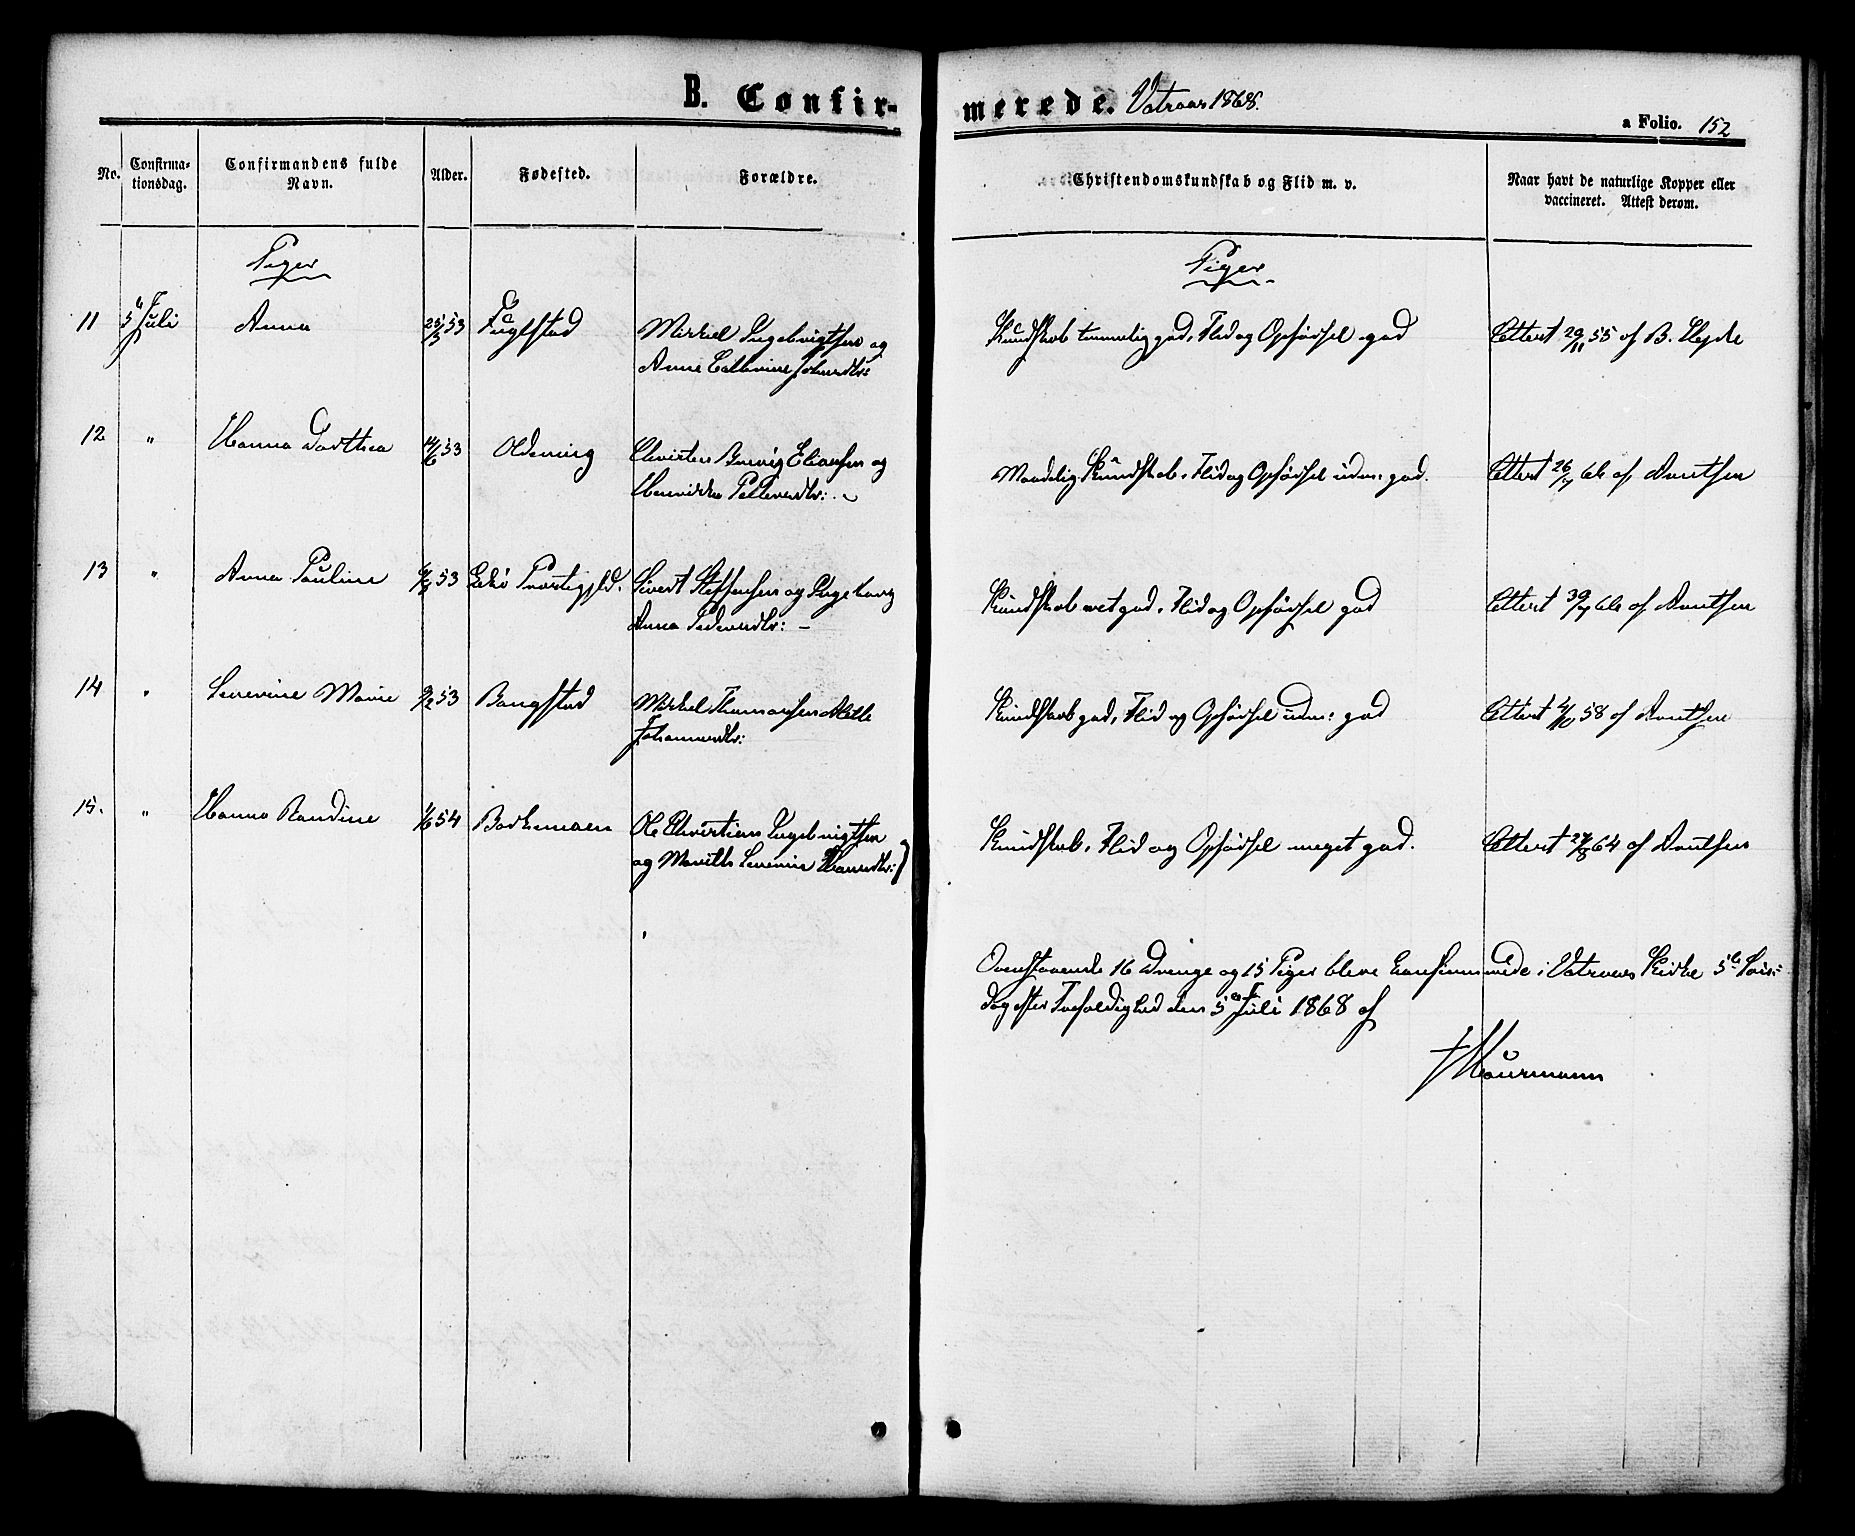 B. Confirmerede. Vatraas 1868.
a Folio. 152
No.
Confirmationsdag.
Confirmandens fulde Navn.
Alder.
Fødested.
Forældre.
Christendomskundskab og Flid m. v.
Naar havt de naturlige Kopper eller vaccineret. Attest derom.
Piger
Piger
11 5 Juli Anna 25/3 53 Fuglstad Mikkel Ingebrigtsen og
Anne Cathrine Johnsdtr:
Kundskab temmelig god, Flid og Opførsel god
Attest 29/11 55 af B.
12 " Hanna Dorthea 14/6 53 Christen Eliassen og
Pettersdtr:
Maadelig Kundskab, Flid og Opførsel udm: god.
Attest 26/7 66 af Arntsen
13 " Anna Pauline 53 Præstegjld. Sivert Steffensen og Ingeborg
Anna Pedersdtr: –
Kundskab meget god, Flid og Opførsel god
Attest 30/7 66 af Arntsen
14 " Severine Marie 9/2 53 Bangstad Mikkel Thomassen
Johannesdtr:
Kundskab god, Flid og Opførsel udm: god
Attest 58 af Arntsen
15. " Hanna Randine 1/6 54 Ole Christian Ingebrigtsen
og Marith Severine Hansdtr:
Kundskab, Flid og Opførsel meget god.
Attest 27/8 64 af Arntsen
Ovenstaaende 16 Drenge og 15 Piger bleve konfirmerede i Vatraas Kirke 5te Søn-
dag efter Trefoldighed den 5te Juli 1868 af